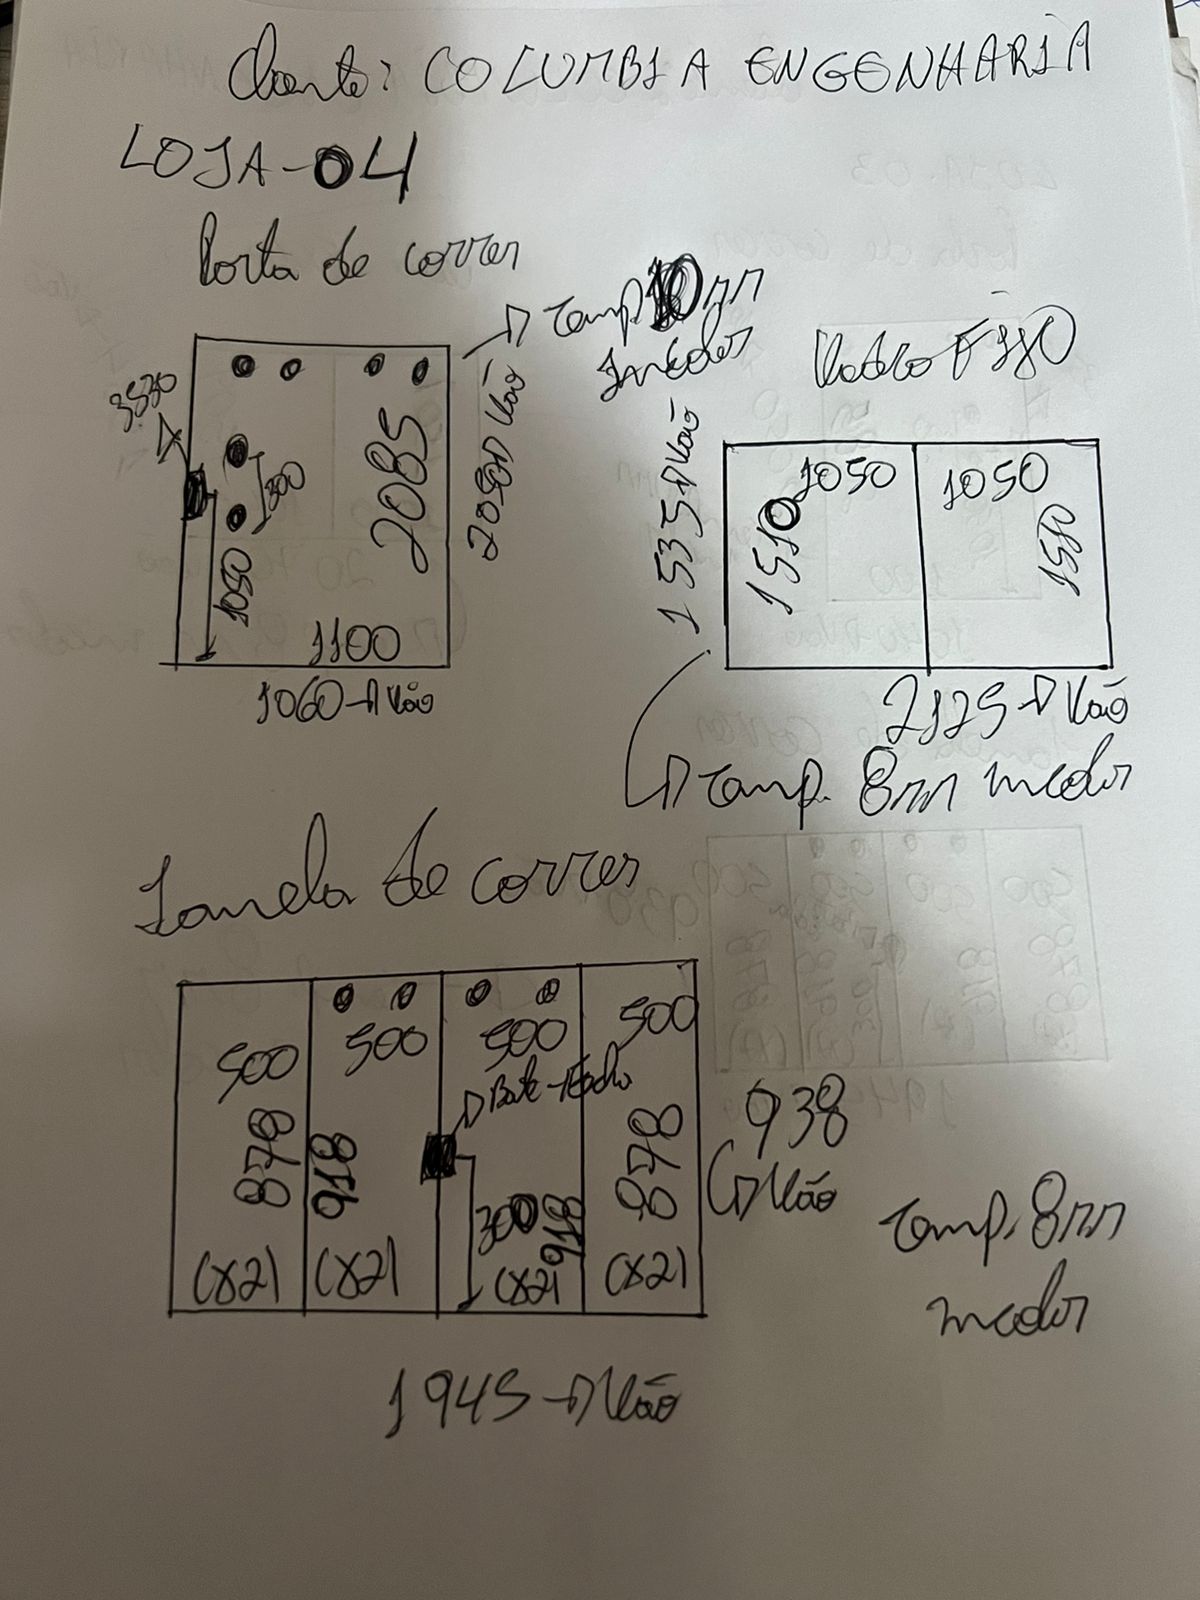 Cliente: COLUMBIA ENGENHARIA
LOJA-04
Porta de correr
Temp 10mm
Incolor
3530
300
1050
2085
2090 → Vão
1100
1060 → Vão
Vidro FIXO
1535 → Vão
1050
1050
1510
1510
2125 → Vão
Temp. 8mm incolor
Janela de correr
500
500
500
500
Bate-Fecho
878
918
300
918
878
(x2)
(x2)
(x2)
(x2)
938
→ Vão
Temp. 8mm
incolor
1945 → Vão